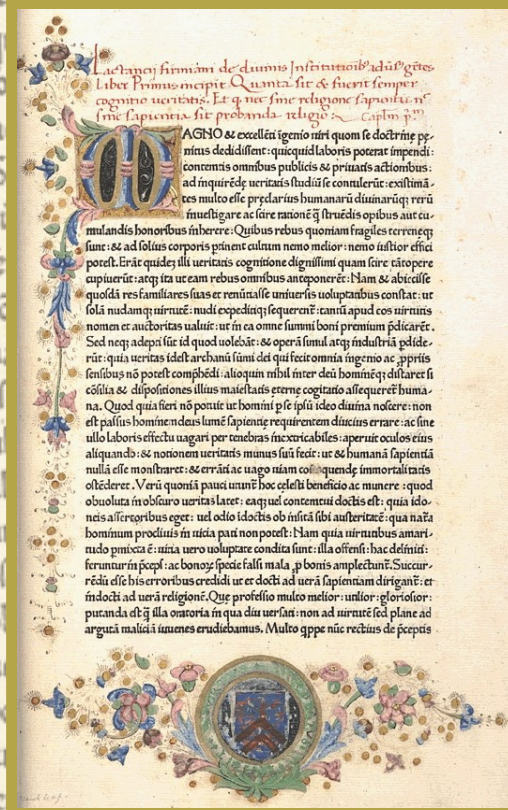 Lactancij firmiani de diuinis Institutoib⁹ adūs⁹ gētes
Liber Primus incipit Quanta sit & fuerit semper
cognitio ueritatis. Et q nec sine religione sapientia nec
sine sapientia sit probanda religio: Caplm p.m
MAGNO & excellēti īgenio uiri quom se doctrinę pę-
nitus dedidissent: quicquid laboris poterat impendi:
contemtis omnibus publicis & priuatis actiombus:
ad inquirēdę ueritatis studiū se contulerūt: existimā-
tes multo esse pręclarius humanarū diuinarūq; rerū
inuestigare ac scire rationē q̄ struēdis opibus aut cu-
mulandis honoribus inherere: Quibus rebus quoniam fragiles terreneq;
sunt: & ad solius corporis ptinent cultum nemo melior: nemo iustior effici
potest. Erāt quidez illi ueritatis cognitione dignissimi quam scire tātopere
cupiuerūt: atq; ita ut eam rebus omnibus anteponerēt: Nam & abiecisse
quosdā res familiares suas et renūtiasse uniuersis uoluptatibus constat: ut
solā nudamq; uirtutē: nudi expeditiq; sequerent: tantū apud eos uirtutis
nomen et auctoritas ualuit: ut in ea omne summi boni premium pdicarēt.
Sed neq; adepti sūt id quod uolebāt: & operā simul atq; industriā pdide-
rūt: quia ueritas idest archanū sūmi dei qui fecit omnia ingenio ac ppriis
sensibus nō potest comphēdi: alioquin nihil inter deū hominēq; distaret si
cōsilia & dispositiones illius maiestatis eterne cogitatio assequeret huma-
na. Quod quia fieri nō potuit ut homini p se ipsū ideo diuina noscere: non
est passus hominem deus lumē sapientie requirentem diucius errare: ac sine
ullo laboris effectu uagari per tenebras inextricabiles: aperuit oculos eius
aliquando: & notionem ueritatis munus suū fecit: ut & humanā sapientiā
nullā esse monstraret: & errāti ac uago uiam cōsequendę immortalitatis
ostēderet. Verū quoniā pauci utunt hoc celesti beneficio ac munere: quod
obuoluta in obscuro ueritas latet: eaq; uel contemtui doctis est: quia ido-
neis assertoribus eget: uel odio īdoctis ob insitā sibi austeritatē: qua natā
hominum procliuis in uicia pati non potest: Nam quia uirtutibus amari-
tudo pmixta ē: uitia uero uoluptate condita sunt: illa offensi: hac deliniti:
feruntur in pcepl: ac bonoz specie falsi mala p bonis amplectunt. Succur-
rēdū esse his erroribus credidi ut et docti ad uerā sapientiam dirigant: et
indocti ad uerā religionē. Que professio multo melior: utilior: gloriosior:
putanda est q̄ illa oratoria in qua diu uersati: non ad uirtutē sed plane ad
argutā maliciā iuuenes erudiebamus. Multo qppe nūc rectius de pceptis